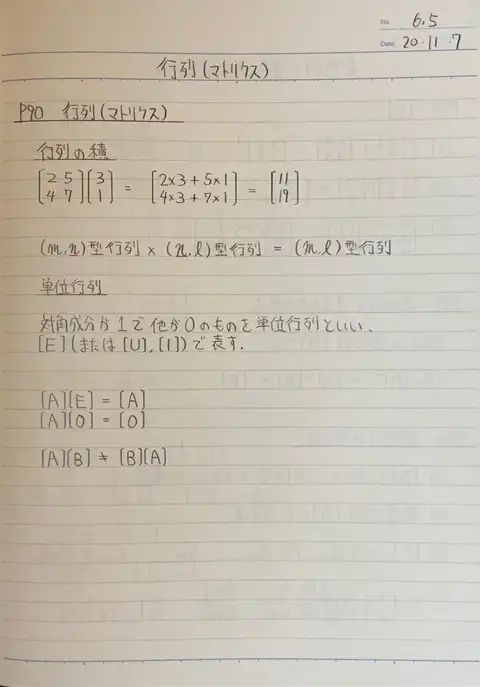 No. 6.5
Date 20・11・7
行列(マトリクス)
P90 行列(マトリクス)
行列の積
[2 5 4 7][3 1] = [2×3+5×1 4×3+7×1] = [11 19]
(m,n)型行列 × (n,l)型行列 = (m,l)型行列
単位行列
対角成分が1で他が0のものを単位行列といい、
[E](または[U],[I])で表す.
[A][E] = [A]
[A][O] = [O]
[A][B] ≠ [B][A]